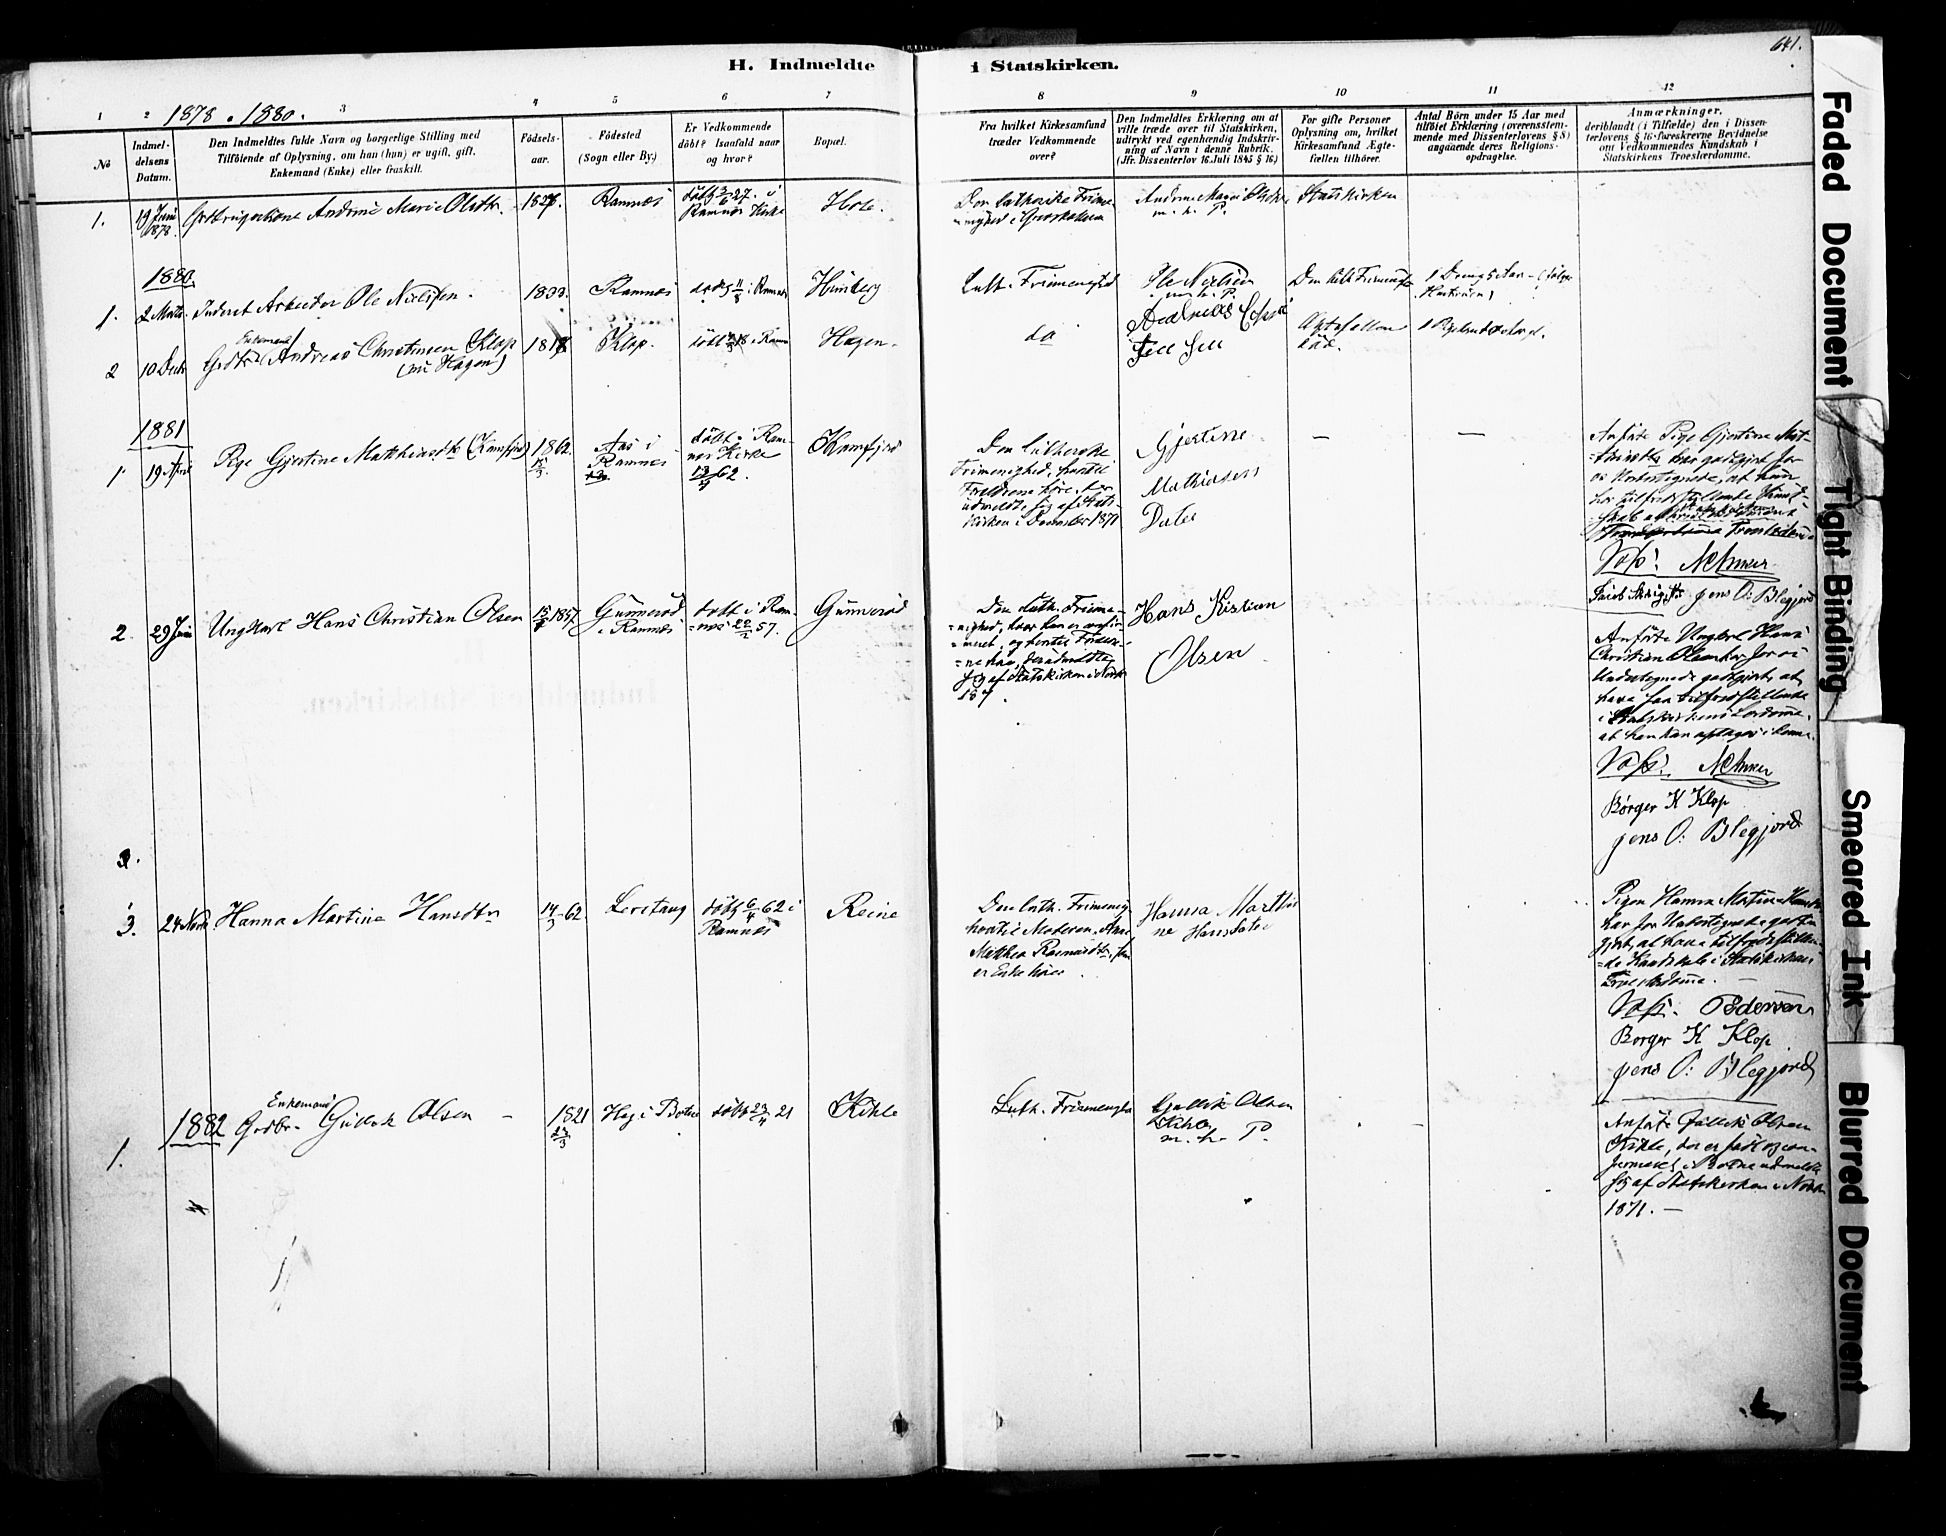 H. Indmeldte i Statskirken.
641.
1878. 1880.
1 2 3 4 5 6 7 8 9 10 11 12
No
Indmel-
delsens
Datum.
Den Indmeldtes fulde Navn og borgerlige Stilling med
Tilföiende af Oplysning, om han (hun) er ugift, gift,
Enkemand (Enke) eller fraskilt.
Födsels-
aar.
Födested
(Sogn eller By.)
Er Vedkommende
döbt? Isaafald naar
og hvor?
Bopæl.
Fra hvilket Kirkesamfund
træder Vedkommende
over?
Den Indmeldtes Erklæring om at
ville træde over til Statskirken,
udtrykt ved egenhændig Indskriv-
ning af Navn i denne Rubrik.
(Jfr. Dissenterlov 16. Juli 1845 § 16.)
For gifte Personer
Oplysning om, hvilket
Kirkesamfund Ægte-
fællen tilhörer.
Antal Börn under 15 Aar med
tilföiet Erklæring (overensstem-
mende med Dissenterlovens § 8)
angaaende deres Religions-
opdragelse.
Anmærkninger,
deriblandt (i Tilfælde) den i Dissen-
terlovens § 16 foreskrevne Bevidnelse
om Vedkommendes Kundskab i
Statskirkens Troeslærdomme.
1.
19 Juni
1878.
Andrine Marie Olsdtr.
1827.
Ramnes
döbt 27. i
Ramnes Kirke
Hole.
Den lutherske Frime-
nighed i
m. h. P.
Statskirken
1880.
1.
2 Marts
Inderst Arbeider Ole Nielsen.
1833.
Ramnes
i Ramnes
Himberg
Luth. Frimenighed
Ole Nielsen
m. h. P.
Den luth. Frimenigh
2
10 Decbr
Enkemand
Gdbr. Andreas Christensen Klop
(nu Hagen)
1818
Klop.
döbt i Ramn
Hagen.
do
Andreas
Ægtefællen
död.
1881
1
19 April
Pige Gjertine Mathiasdtr (Kamfjord)
1862
Aas i
Ramnes
döbt i Ram-
nes Kirke
62.
Kamfjord
Den lutherske
Frimenighed, hvortil
Forældrene höre, der
udmeldte sig af Stats-
kirken i December 1871
Gjertine
Mathiasens
Dater
—
—
Anförte Pige Gjertine Mat-
hiasdtr har godtgjort for
os Undertegnede, at hun
har tilfredsstillende Kund-
skab
Troeslærdomme
Vdf: N Anker
Jens O: Blegjord
2.
29 Juni
Ungkarl Hans Christian Olsen
1857
Gunneröd
i Ramnes
döbt i Ram-
nes 57.
Gunneröd
Den luth. Frime-
nighed, hvor han er confir-
meret, og hvortil Foræld-
rene höre, der udmeldte
sig af Statskirken
Hans Kistian
Olsen
Anförte Ungkarl Hans
Christian Olsen har for os
Undertegnede godtgjort, at
have saa tilfredsstillende
i Statskirkens Lærdomme,
at han kan optages i denne.
Vdf: N Anker
Börger K Klop
jens O: Blegjord
3.
24 Novb
Hanna Martine Hansdtr
14/3 62.
Leretang
döbt 6/4 62 i
Ramnes
Reine
Den luth. Frimenig-
hvortil Moderen, Anne
Mathea Rasmusdtr, som
er Enke hörer.
Hanna Marthi
ne Hansdater
Pigen Hanna Martine Hansdtr
har for Undertegnede godt-
gjort, at have tilfredsstillen-
de Kundskab i Statskirkens
Troeslærdomme. —
Vdf: Pedersen
Borger K Klop
jens O: Blegjord
1882
1.
Enkemand
Gdbr. Gullik Olsen —
1821
Hag i Botne
döbt 21
Kihle
Luth. Frimenighed
Gullik Olsen
Kihle
m. h. P.
Anförte Gullik Olsen
Kihle, der er födt og con-
firmeret i Botne udmeldte
sig af Statskirken i Novbr
1871. —
Faded Document
Tight Binding
Smeared Ink
Blurred Document